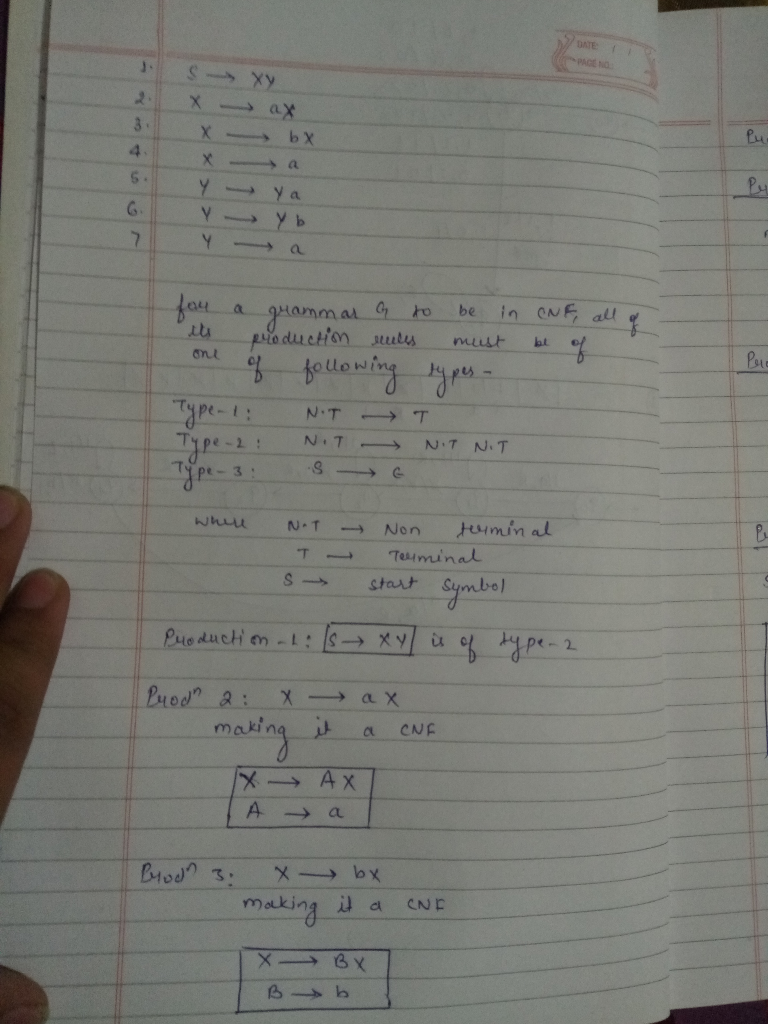 DATE: / /
PAGE NO.:
1. S → XY
2. X → aX
3. X → bX
4. X → a
5. Y → Ya
6. Y → Yb
7 Y → a
for a grammar G to be in CNF, all of
its production rules must be of
one of following types -
Type-1: N.T → T
Type-2: N.T → N.T N.T
Type-3: S → ϵ
where N.T → Non terminal
T → Terminal
S → start symbol
Production-1: S → XY is of type-2
Prodⁿ 2: X → aX
making it a CNF
X → AX
A → a
Prodⁿ 3: X → bX
making it a CNF
X → BX
B → b